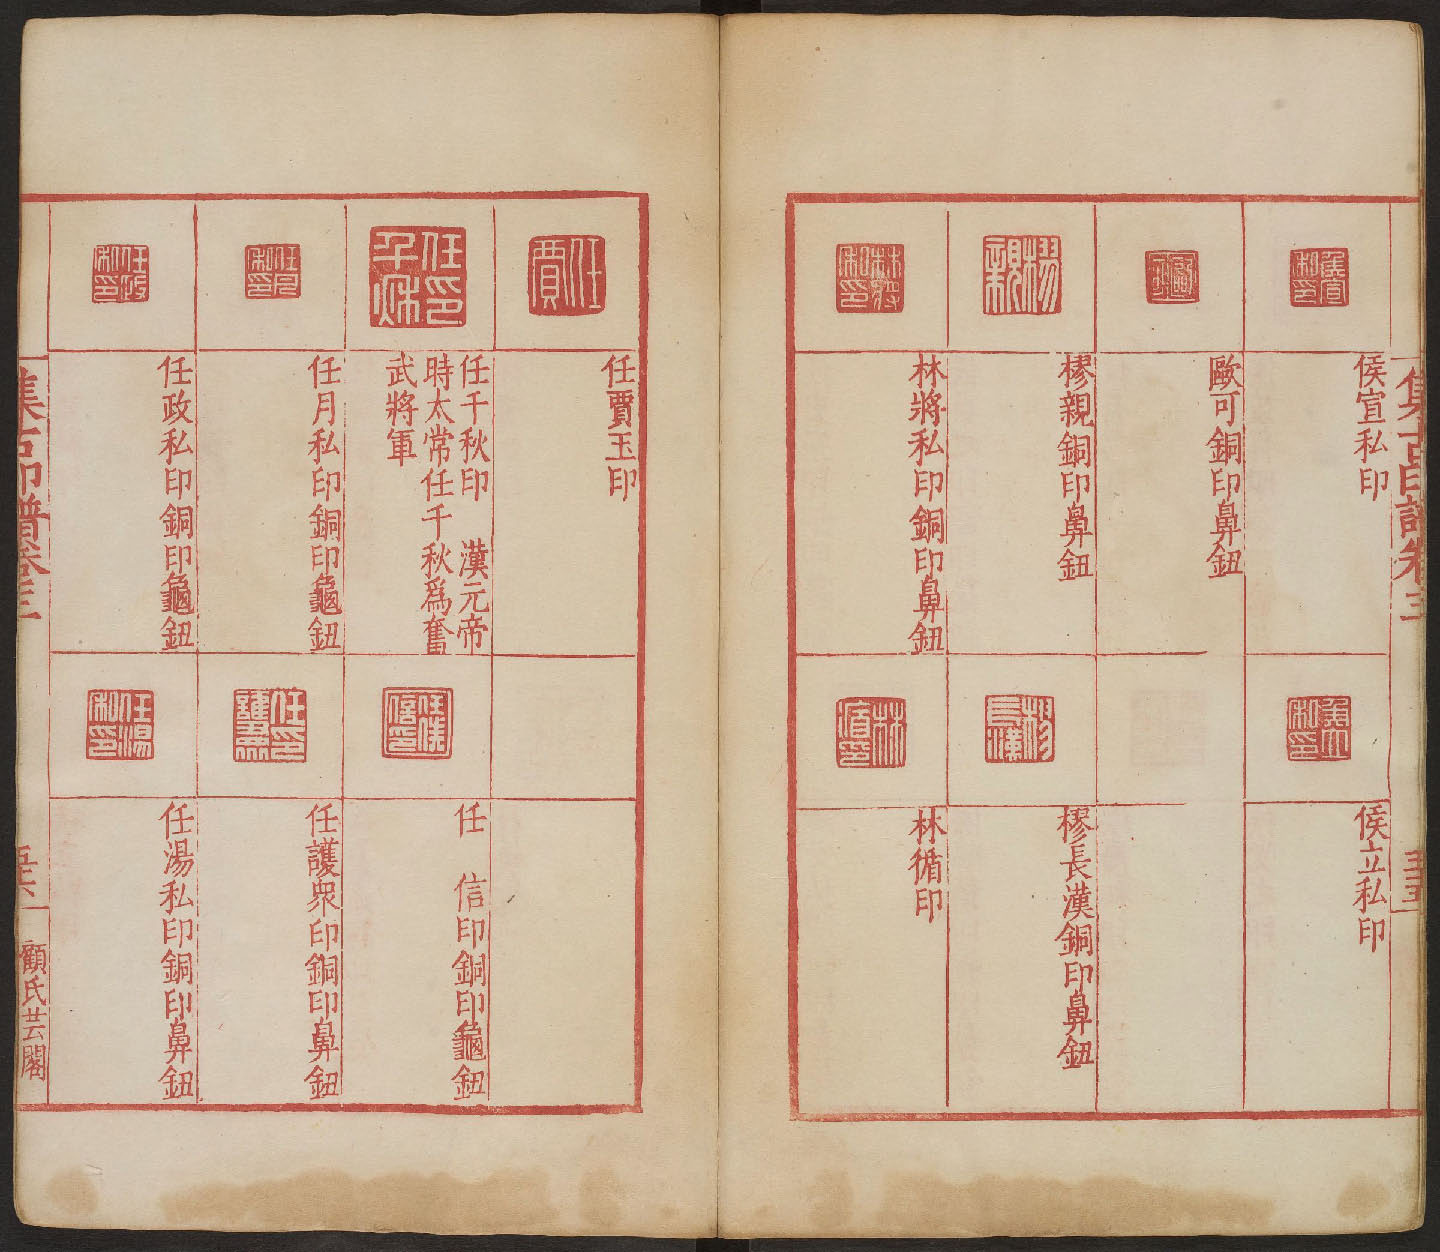 集古印譜卷三
五十五
侯宣私印
歐可銅印鼻鈕
樛親銅印鼻鈕
林將私印銅印鼻鈕
侯立私印
樛長漢銅印鼻鈕
林循印
任賈玉印
任千秋印 漢元帝
時太常任千秋爲奮
武將軍
任月私印銅印龜鈕
任政私印銅印龜鈕
任 信印銅印龜鈕
任護衆印銅印鼻鈕
任湯私印銅印鼻鈕
集古印譜卷三
五十六
顧氏芸閣